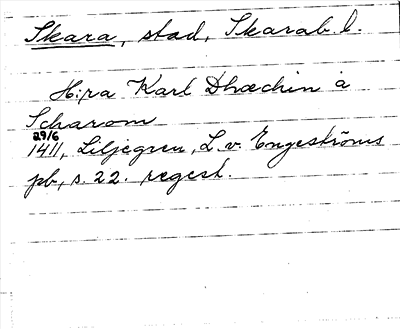 Skara, stad, Skarab l.
H:ra Karl Dhæchin a
Scharom
29/6
1411, Liljegren, L. v. Engeströms
pb, s. 22. regest.